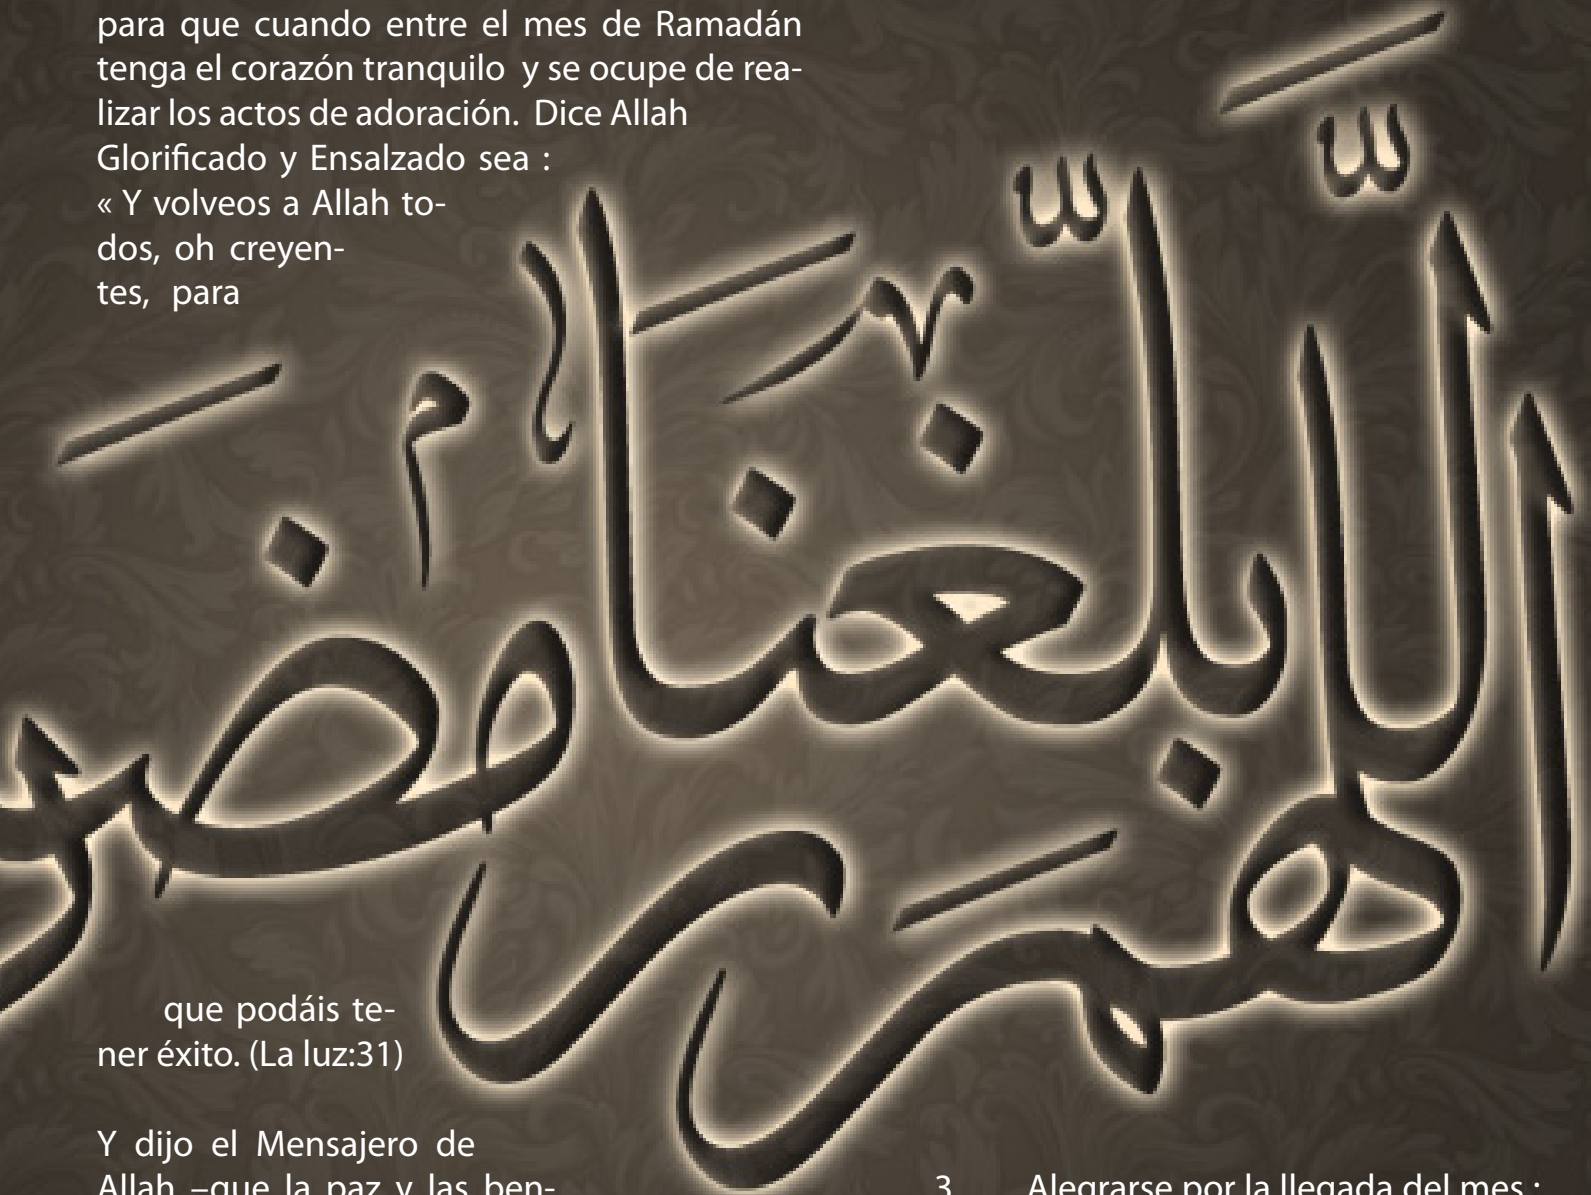 para que cuando entre el mes de Ramadán
tenga el corazón tranquilo y se ocupe de rea-
lizar los actos de adoración. Dice Allah
Glorificado y Ensalzado sea :
« Y volveos a Allah to-
dos, oh creyen-
tes, para
اللّهم بلّغنا
que podáis te-
ner éxito. (La luz:31)
Y dijo el Mensajero de
Allah –que la paz y las ben-
3 Alegrarse por la llegada del mes :